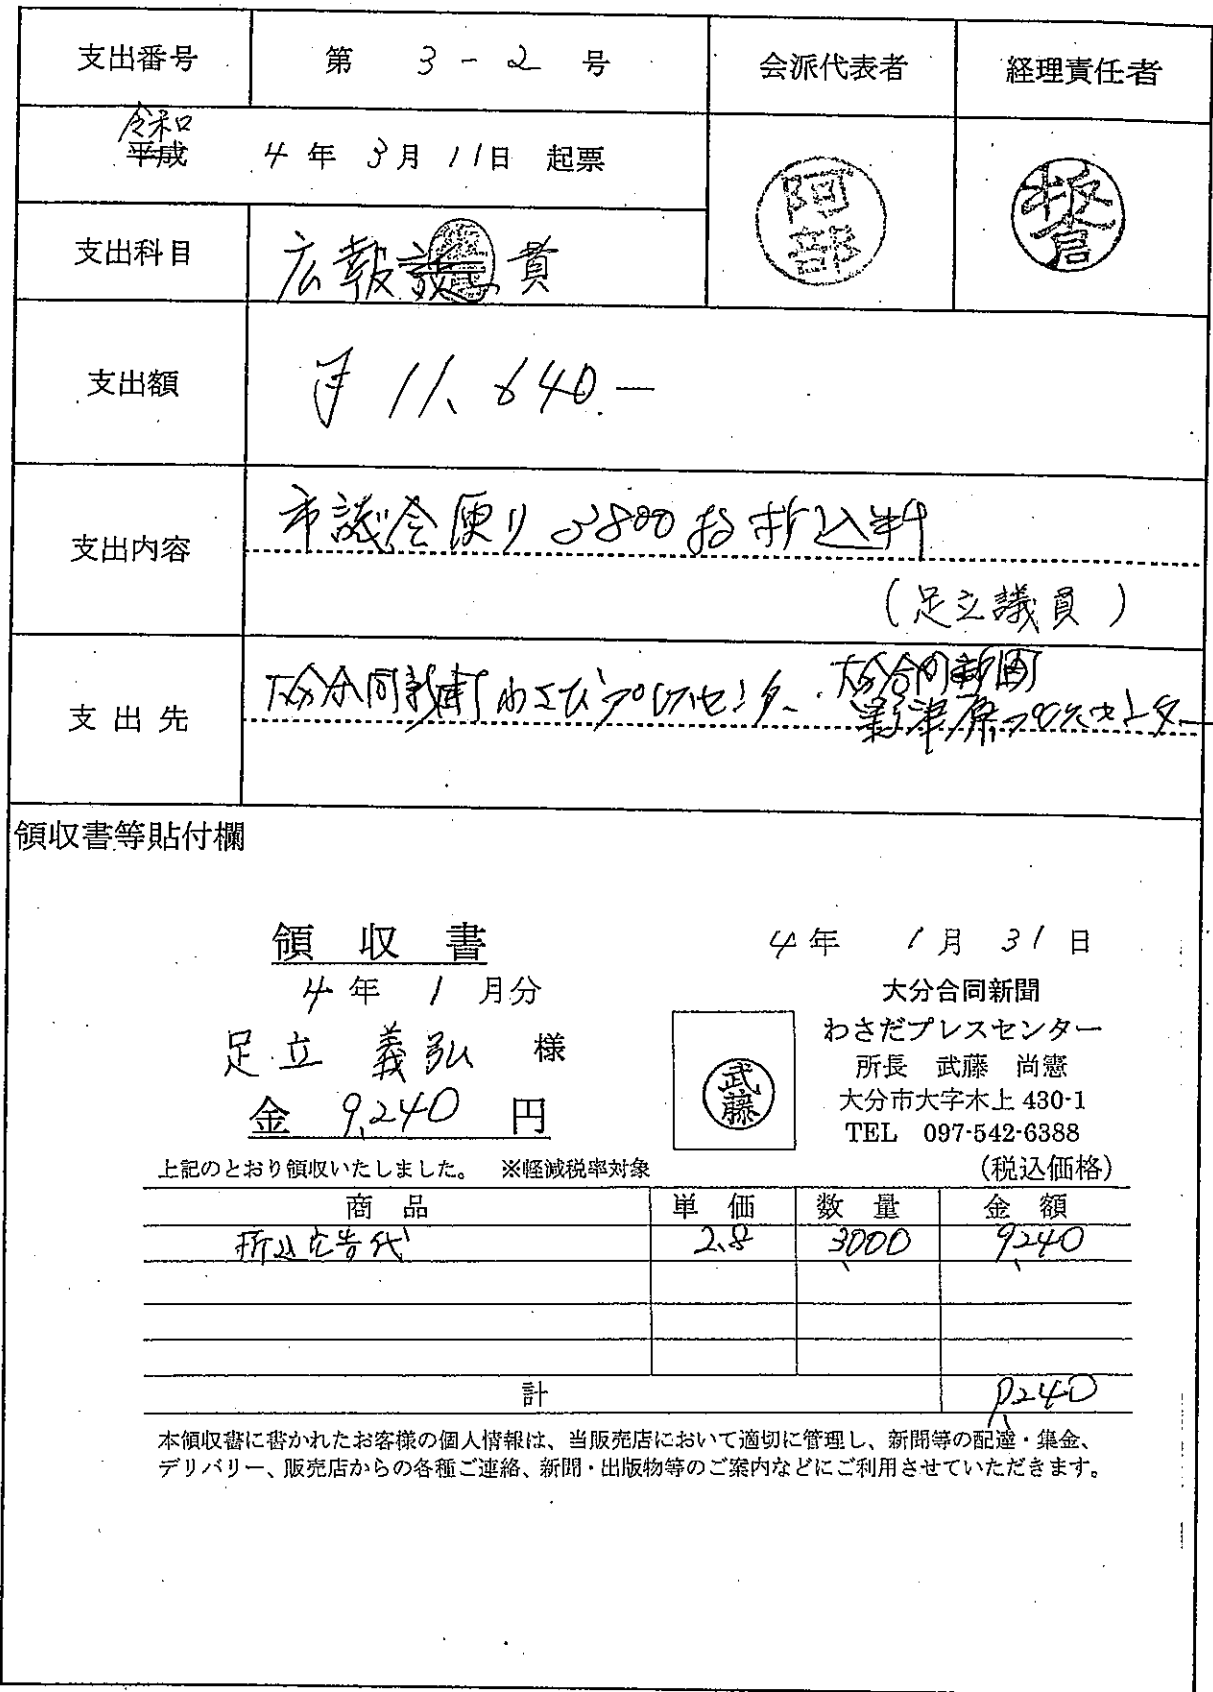 支出番号 第 3-2 号 会派代表者 経理責任者
令和
平成 4年 3月 11日 起票
阿部 板倉
支出科目 広報 費
支出額 11,640.―
支出内容 市議会便り 3800部折込料
(足立議員)
支出先 大分合同新聞わさだプレスセンター、大分合同新聞
野津原プレスセンター
領収書等貼付欄
領収書 4年 1月 31日
4年 1月分 大分合同新聞
足立 義弘 様 わさだプレスセンター
武藤 所長 武藤 尚憲
金 9,240 円 大分市大字木上 430-1
TEL 097-542-6388
上記のとおり領収いたしました。 ※軽減税率対象 (税込価格)
商品 単価 数量 金額
折込広告代 2.8 3,000 9,240
計 9,240
本領収書に書かれたお客様の個人情報は、当販売店において適切に管理し、新聞等の配達・集金、
デリバリー、販売店からの各種ご連絡、新聞・出版物等のご案内などにご利用させていただきます。